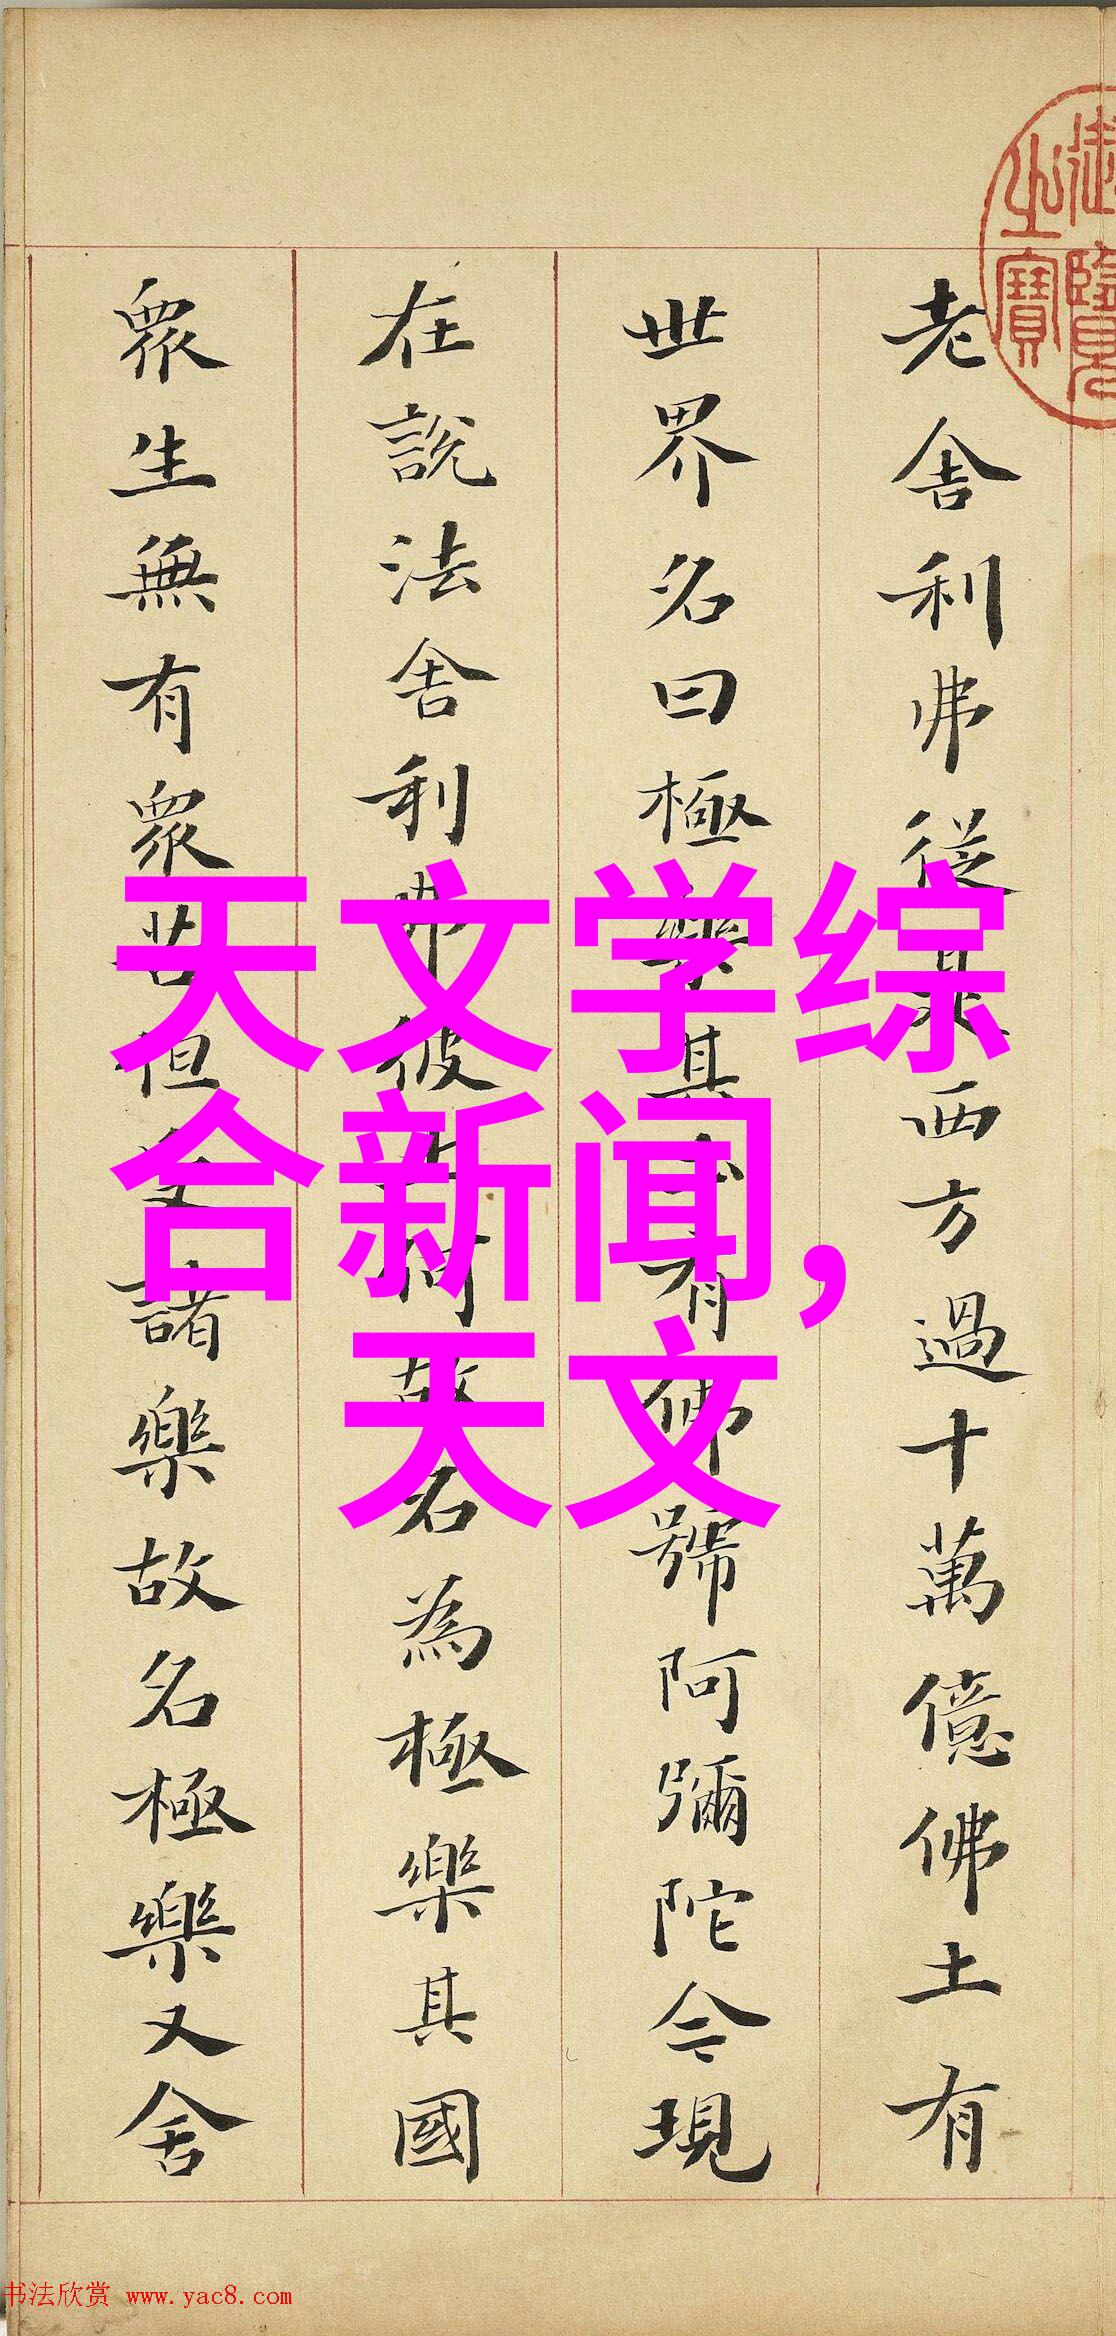 老舍利弗從是西方過十萬億佛土有
世界名曰極樂其土有佛號阿彌陀今現
在說法舍利弗彼土何故名為極樂其國
眾生無有眾苦但受諸樂故名極樂又舍
御覽之寶
天文学综
合新闻,
天文
书法欣赏 www.yac8.com